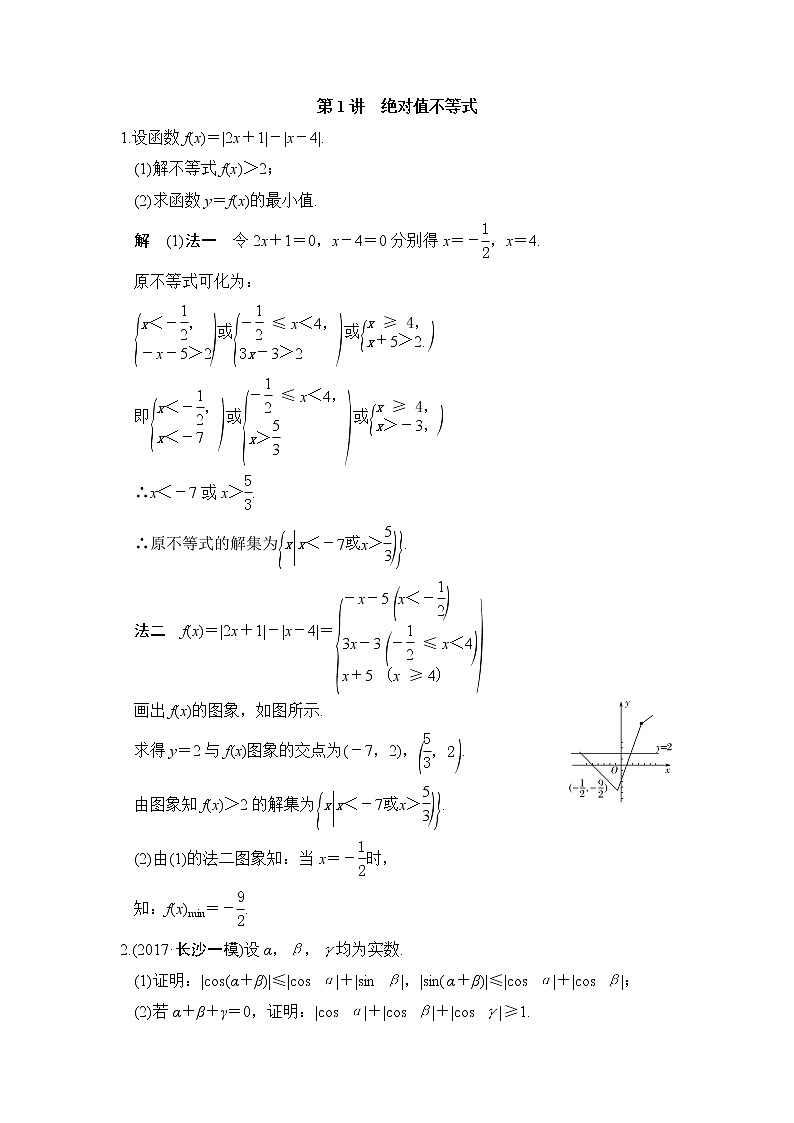 第1讲　绝对值不等式
1.设函数 f(x)＝|2x＋1|－|x－4|.
(1)解不等式 f(x)＞2；
(2)求函数 y＝f(x)的最小值.
解　(1)法一　令 2x＋1＝0，x－4＝0 分别得 x＝－1/2，x＝4.
原不等式可化为：
{x＜－1/2，－x－5＞2 或 {－1/2 ≤ x＜4，3x－3＞2 或 {x ≥ 4，x＋5＞2.
即 {x＜－1/2，x＜－7 或 {－1/2 ≤ x＜4，x＞5/3 或 {x ≥ 4，x＞－3，
∴x＜－7 或 x＞5/3.
∴原不等式的解集为{x|x＜－7或x＞5/3}.
法二　f(x)＝|2x＋1|－|x－4|＝{－x－5 (x＜－1/2) 3x－3 (－1/2 ≤ x＜4) x＋5 （x ≥ 4）
画出 f(x)的图象，如图所示.
求得 y＝2 与 f(x)图象的交点为(－7，2)，(5/3，2).
由图象知 f(x)＞2 的解集为{x|x＜－7或x＞5/3}.
y
y=2
O
x
(－1/2,－9/2)
(2)由(1)的法二图象知：当 x＝－1/2时，
知：f(x)min＝－9/2.
2.(2017·长沙一模)设 α，β，γ均为实数.
(1)证明：|cos(α＋β)|≤|cos α|＋|sin β|，|sin(α＋β)|≤|cos α|＋|cos β|；
(2)若 α＋β＋γ＝0，证明：|cos α|＋|cos β|＋|cos γ|≥1.